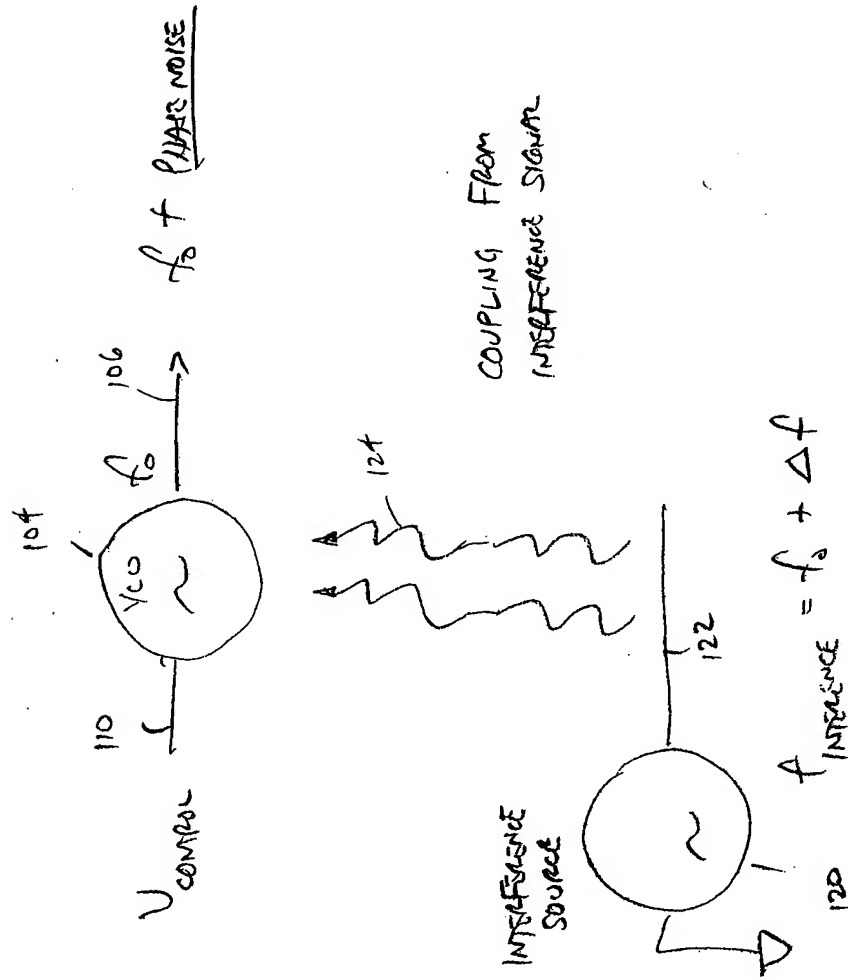 104
VCO
110
U CONTROL
f₀
106
f₀ + PHASE NOISE
124
COUPLING FROM
INTERFERENCE SIGNAL
INTERFERENCE
SOURCE
122
120
f INTERFERENCE = f₀ + Δf